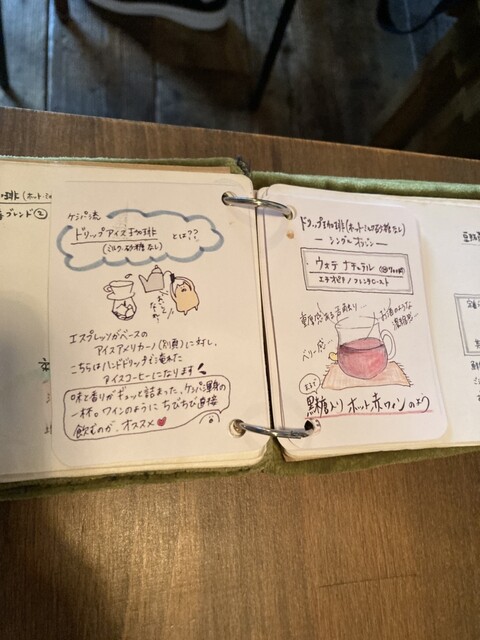 ケンパ流
ドリップアイス珈琲
(ミルク.砂糖なし)
とは??
エスプレッソがベースの
アイスアメリカーノ(別頁)に対し、
こちらはハンドドリップで淹れた
アイスコーヒーになります!
味と香りがギュッと詰まった、ケンパ渾身の
一杯。ワインのようにちびちび直接
飲むのが、オススメ
ドリップ珈琲(ホット・ミルク砂糖なし)
ー シングルオリジン ー
ウォテ ナチュラル
エチオピア / フレンチロースト
重厚感ある舌触り
お酒のような
ベリー感
黒糖よりホット赤ワインのよう
琲(ホット・ミ
ブレンド②